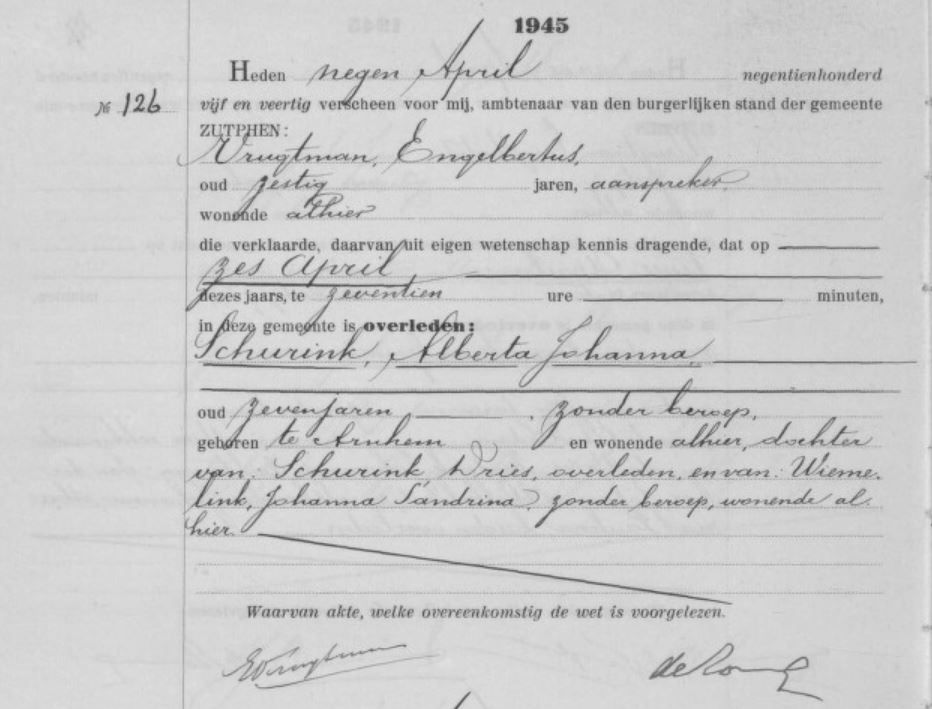 1945
Heden negen April negentienhonderd
№ 126 vijf en veertig verscheen voor mij, ambtenaar van den burgerlijken stand der gemeente
ZUTPHEN:
Vrugtman, Engelbertus,
oud zestig jaren, aanspreker,
wonende alhier
die verklaarde, daarvan uit eigen wetenschap kennis dragende, dat op
zes April
dezes jaars, te zeventien ure minuten,
in deze gemeente is overleden:
Schurink, Alberta Johanna,
oud zeven jaren, zonder beroep,
geboren te Arnhem en wonende alhier, dochter
van: Schurink, Dries, overleden, en van: Wieme-
link, Johanna Sandrina, zonder beroep, wonende al-
hier.
Waarvan akte, welke overeenkomstig de wet is voorgelezen.
EVrugtman